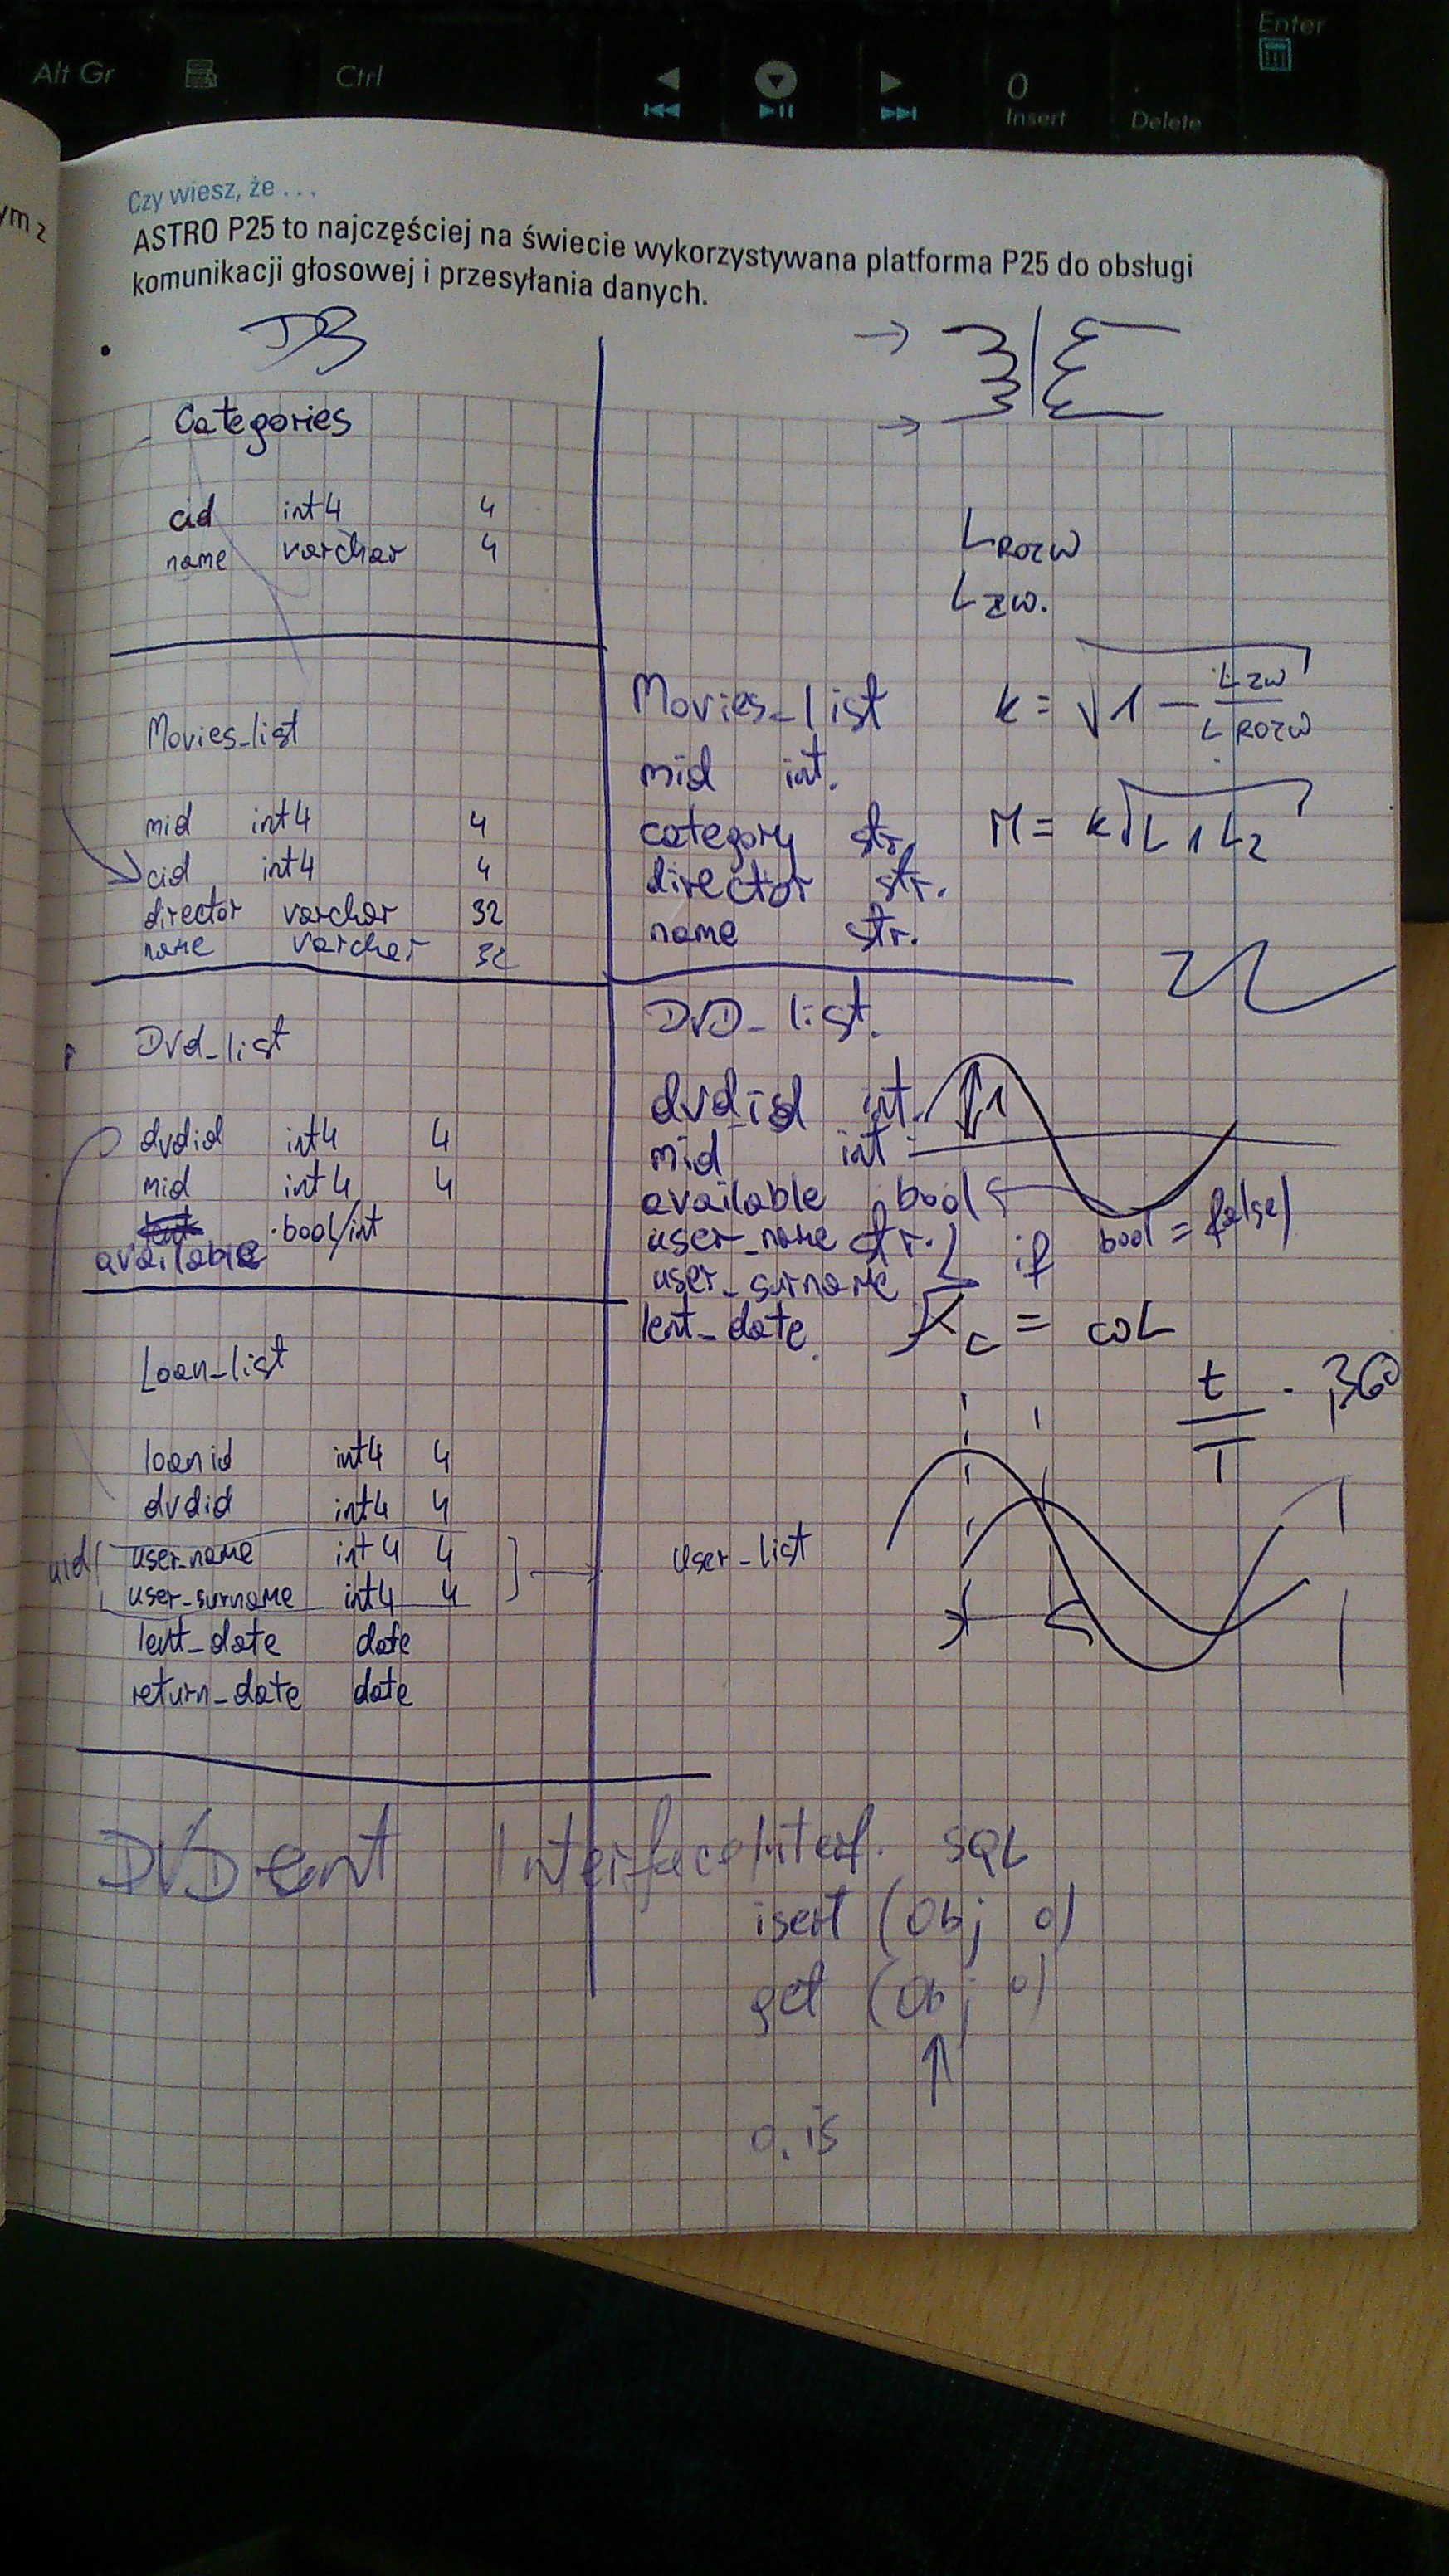 Alt Gr
Ctrl
0
Insert
Delete
Enter
ym z
Czy wiesz, że ...
ASTRO P25 to najczęściej na świecie wykorzystywana platforma P25 do obsługi
komunikacji głosowej i przesyłania danych.
DB
Categories
cid int4 4
name varchar 4
Movies_list
mid int4 4
cid int4 4
director varchar 32
name varchar 32
Dvd_list
dvdid int4 4
mid int4 4
bool/int
available
Loan_list
loanid int4 4
dvdid int4 4
uid
user_name int4 4
user_surname int4 4
lent_date date
return_date date
L ROZW
L ZW.
k = √1 - L ZW / L ROZW
M = k √L1 L2
Movies_list
mid int.
category str.
director str.
name str.
DVD_list.
dvdid int.
1
mid int
available bool
user_name str. if bool = false
user_surname
lent_date
XC = ωL
t / T · 360
user_list
DVD ent Interface Interf. SQL
isert (Obj o)
get (Obj o)
o. is